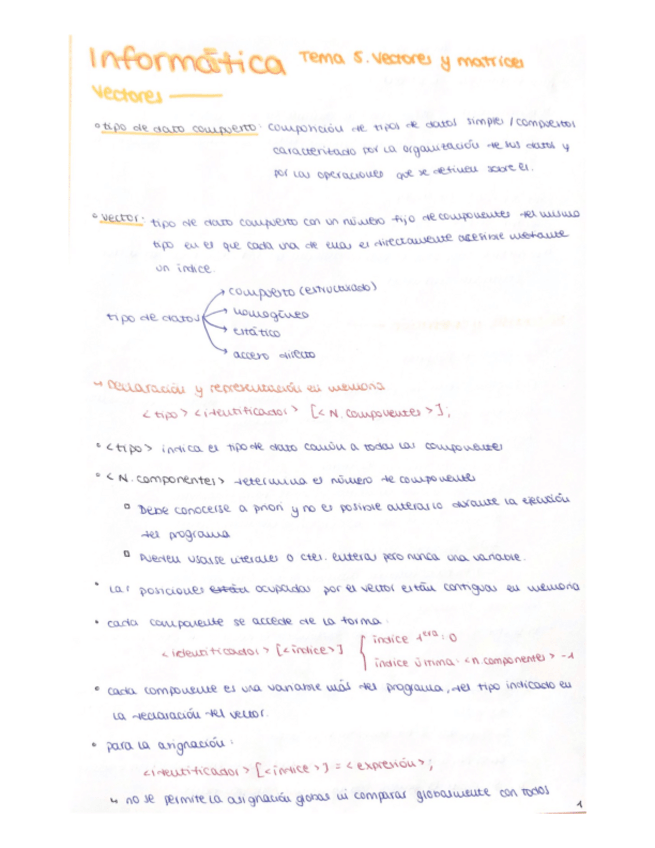 Informática Tema 5. Vectores y matrices
Vectores
tipo de dato compuesto: composición de tipos de datos simples/compuestos
caracterizado por la organización de sus datos y
por las operaciones que se definen sobre él.
vector: tipo de dato compuesto con un número fijo de componentes del mismo
tipo en el que cada una de ellas es directamente accesible mediante
un índice.
compuesto (estructurado)
homogéneo
tipo de datos
estático
acceso directo
↳ Declaración y representación en memoria
<tipo> <identificador> [<N. componentes>];
<tipo> indica el tipo de dato común a todas las componentes
<N. componentes> determina el número de componentes
Debe conocerse a priori y no es posible alterarlo durante la ejecución
del programa
Pueden usarse literales o ctes. enteras pero nunca una variable.
Las posiciones están ocupadas por el vector están contiguas en memoria
cada componente se accede de la forma:
<identificador> [<índice>]
índice 1era: 0
índice última: <n componentes> -1
cada componente es una variable más del programa, del tipo indicado en
la declaración del vector.
para la asignación:
<identificador> [<índice>] = <expresión>;
↳ no se permite la asignación global ni comparar globalmente con todos
1